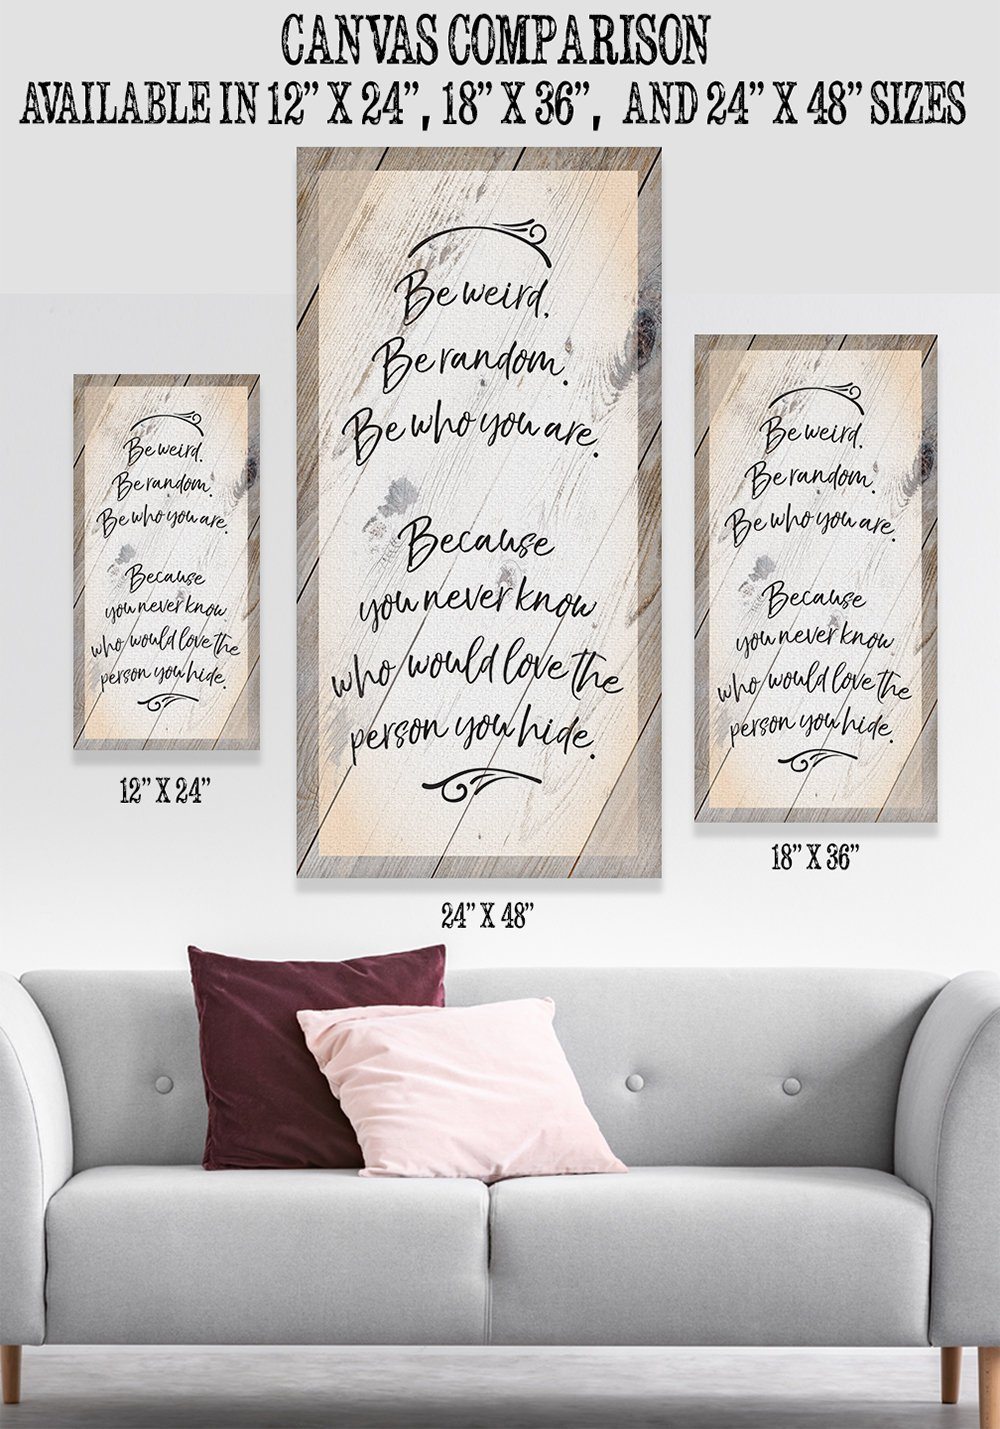 CANVAS COMPARISON
AVAILABLE IN 12” X 24”, 18” X 36”, AND 24” X 48” SIZES
Be weird.
Be random.
Be who you are.
Because
you never know
who would love the
person you hide.
12” X 24”
Be weird.
Be random.
Be who you are.
Because
you never know
who would love the
person you hide.
24” X 48”
Be weird.
Be random.
Be who you are.
Because
you never know
who would love the
person you hide.
18” X 36”